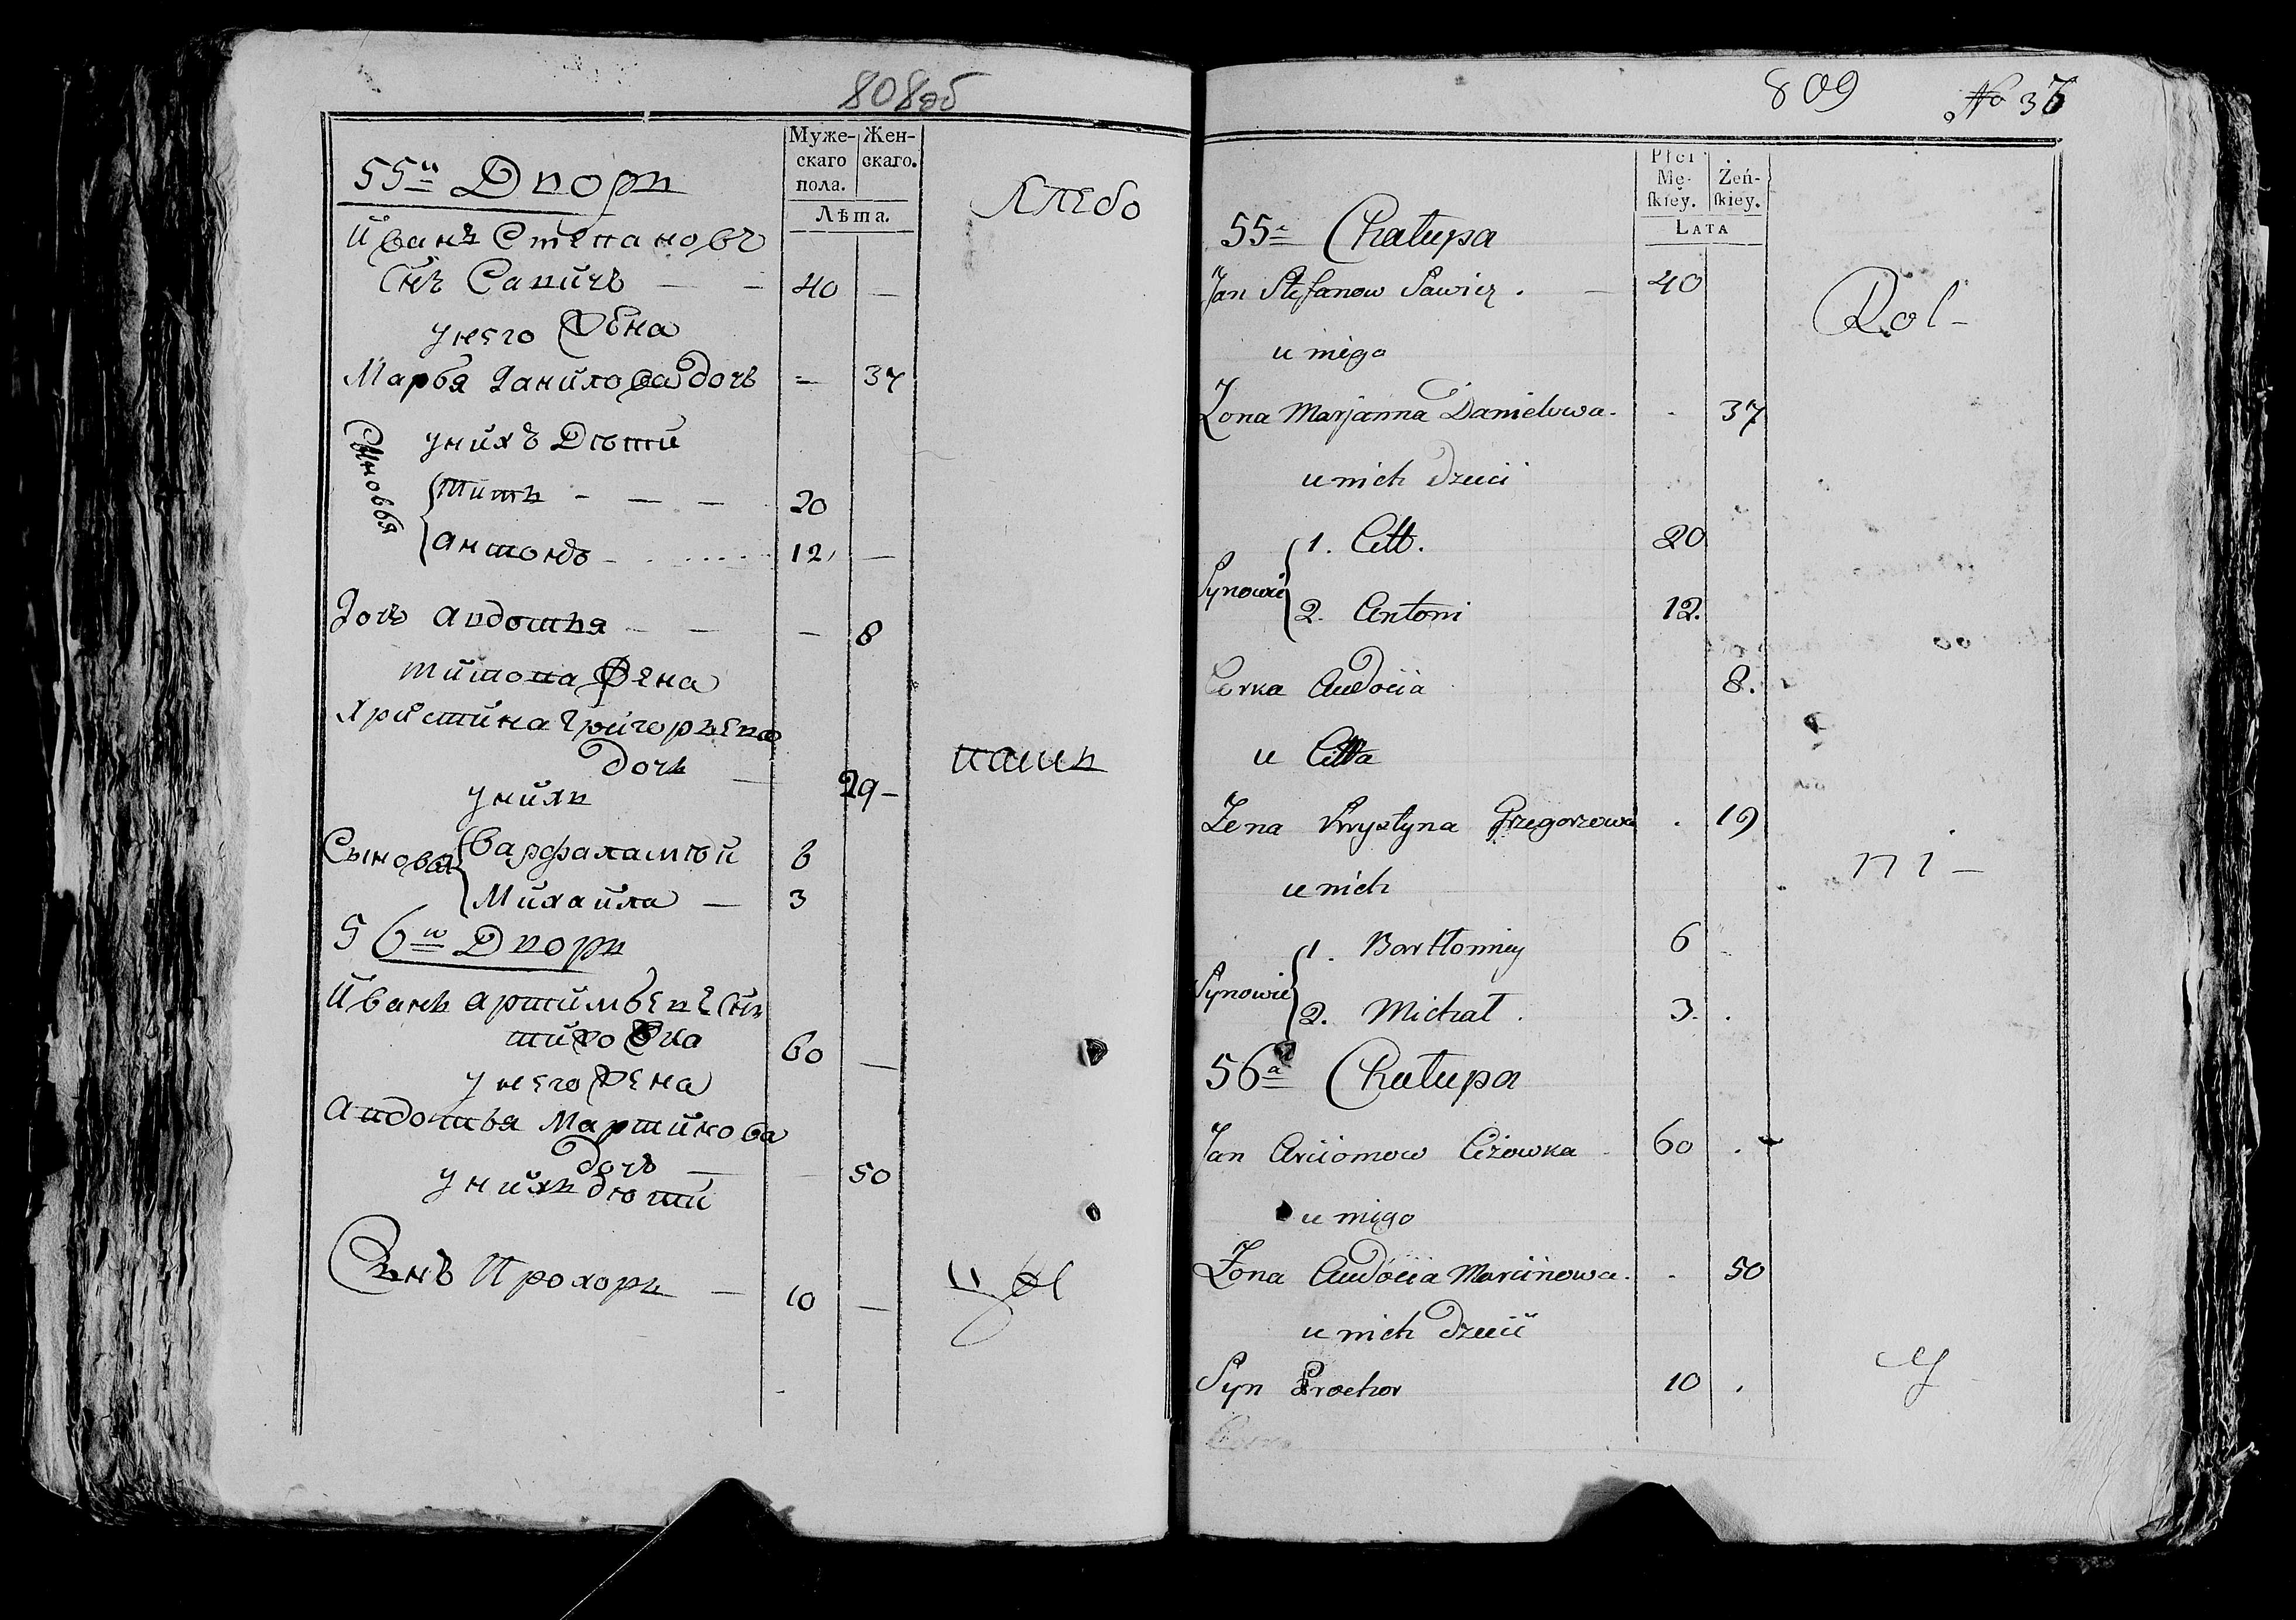 808об
Муже-
скаго
пола.
Жен-
скаго.
Лѣта.
55й Дворъ
Иванъ Степановъ
Снъ Савичъ — — 40 —
у него жена
Марья Данилова дочь = 37
у нихъ дѣти
Сыновья
Титъ - — — 20
Антонъ - 12 —
Дочь Авдотья — — — 8
Титова жена
Христина Григорьева
дочь — 29 —
у нихъ
Сыновья
Варфаламѣй 6
Михайла — 3
56й Дворъ
Иванъ Артимьевъ Снъ
60 —
у него жена
Авдотья Мартинова
дочь — 50
у нихъ дѣти
Сынъ Прохоръ — 10 —
Хлебо
пашъ
809
No 37
Płci
Mę-
ſkiey.
Żeń-
ſkiey.
LATA
55a Chałupa
Jan Stefanow Sawicz . — 40
u niego
Żona Marjanna Danielowa - - 37
u nich dzieci
Synowie
1. Citt. 20
2. Antoni 12.
Corka Audocia 8.
u Citta
Żena Krystyna Grzegorzowa . 19
u nich
Synowie
1. Bartłomiey 6
2. Michał . 3. .
56a Chałupa
Jan Arciomow Ciżowka 60 .
u niego
Żona Audocia Marcinowa . - 50
u nich dzieci
Syn Prochor 10 .
Rol-
ni-
cy